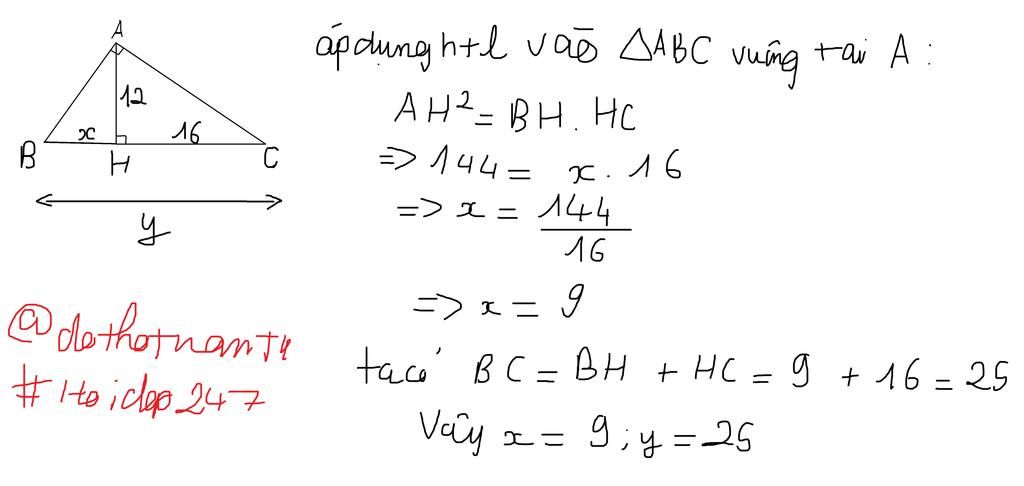 A
12
x
16
B
H
C
y
áp dụng htl vào △ABC vuông tại A :
AH² = BH . HC
=> 144 = x . 16
=> x = 144/16
=> x = 9
ta có BC = BH + HC = 9 + 16 = 25
Vậy x = 9 ; y = 25
#Hoidap247